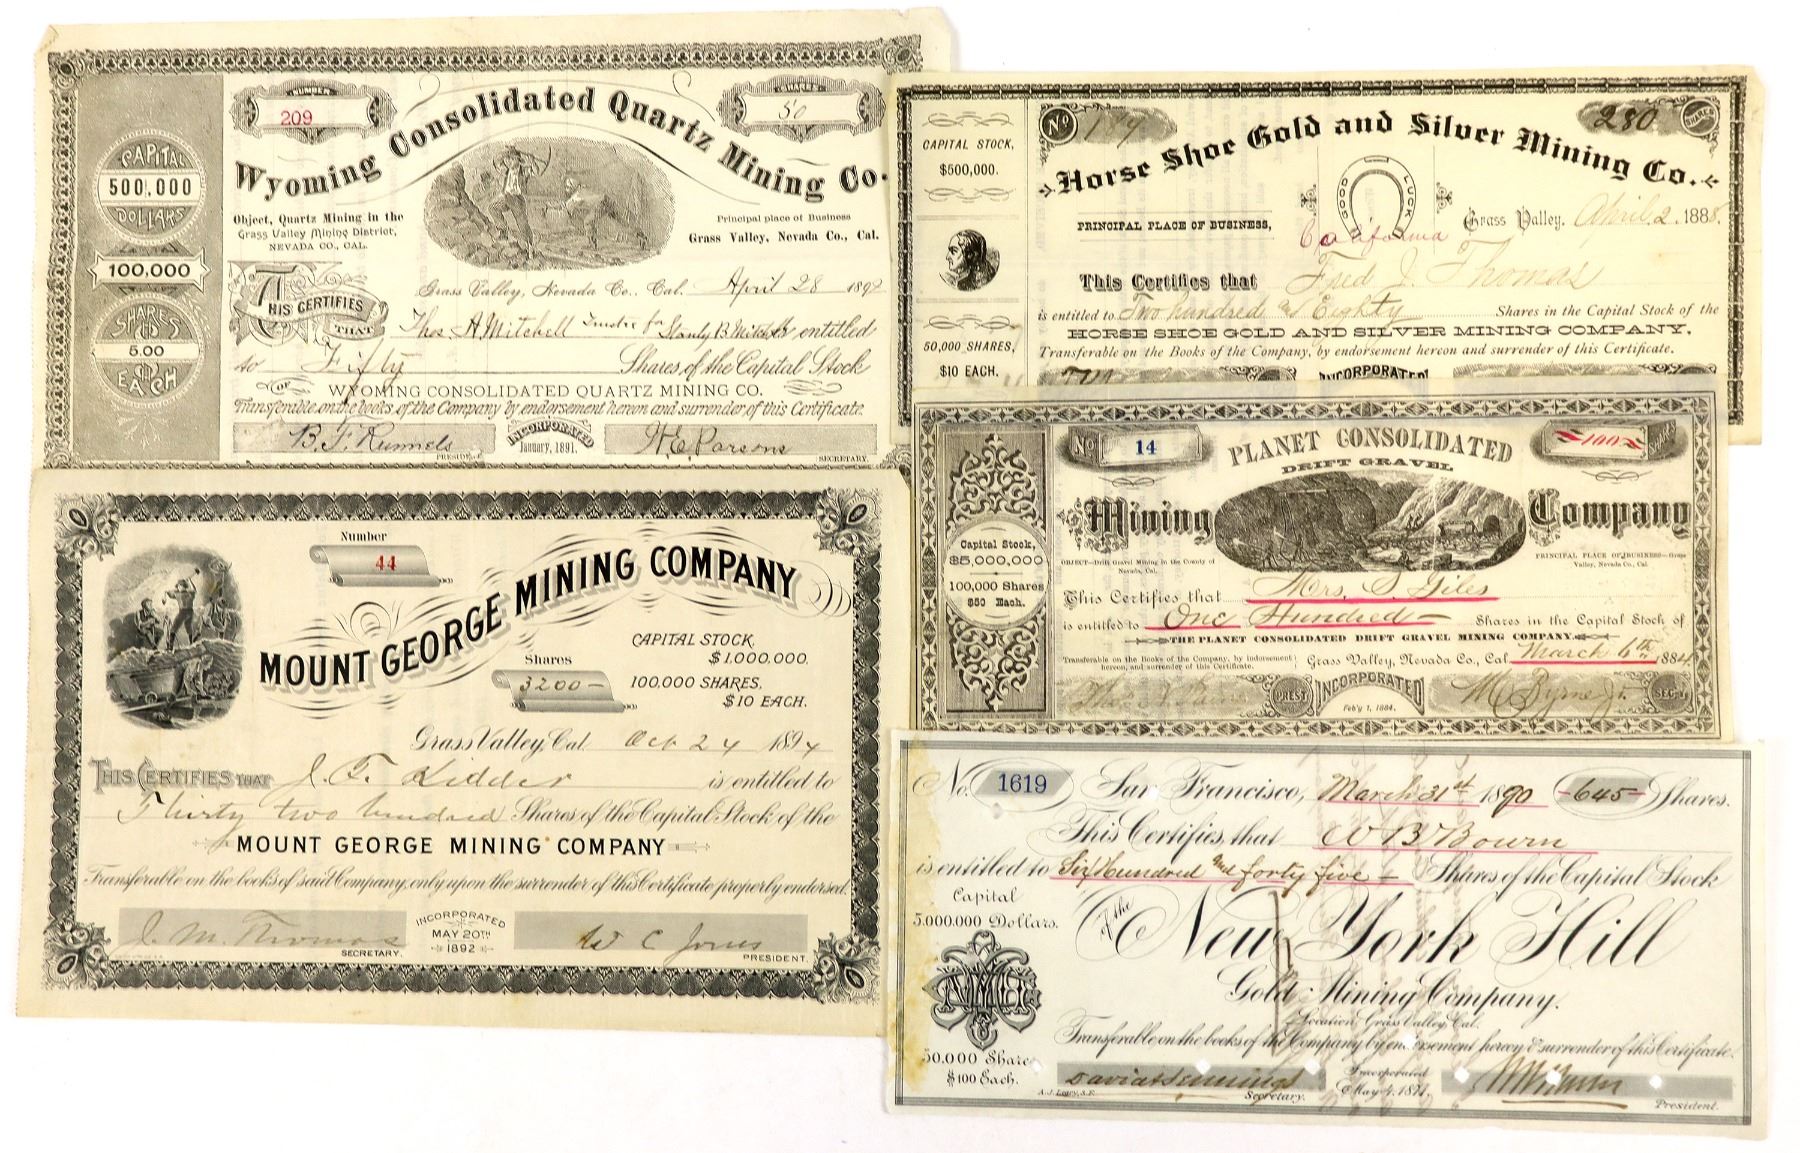 NUMBER
209
SHARES
50
Wyoming Consolidated Quartz Mining Co.
CAPITAL
500,000
DOLLARS
100,000
SHARES
5.00
EACH
Object, Quartz Mining in the
Grass Valley Mining District,
NEVADA CO., CAL.
Principal place of Business
Grass Valley, Nevada Co., Cal.
Grass Valley, Nevada Co., Cal. April 28 1892
THIS CERTIFIES
THAT
Thos A Mitchell Trustee for Stanly B Mitchell entitled
to Fifty Shares of the Capital Stock
OF
WYOMING CONSOLIDATED QUARTZ MINING CO.
Transferable on the books of the Company by endorsement hereon and surrender of this Certificate.
B. F. Runnels
PRESIDENT
INCORPORATED
January, 1891.
W. E. Parsons
SECRETARY.
CAPITAL STOCK,
$500,000.
50,000 SHARES,
$10 EACH.
No
280
SHARES
Horse Shoe Gold and Silver Mining Co.
GOOD LUCK
PRINCIPAL PLACE OF BUSINESS,
California
Grass Valley, April 2. 1888.
This Certifies that Fred J. Thomas
is entitled to Two hundred and Eighty Shares in the Capital Stock of the
HORSE SHOE GOLD AND SILVER MINING COMPANY,
Transferable on the Books of the Company, by endorsement hereon and surrender of this Certificate.
INCORPORATED
Number
44
MOUNT GEORGE MINING COMPANY
CAPITAL STOCK,
$1,000,000.
Shares
3200
100,000 SHARES,
$10 EACH.
Grass Valley, Cal. Oct 24 1894
THIS CERTIFIES THAT J. F. Kidder is entitled to
Thirty two hundred Shares of the Capital Stock of the
MOUNT GEORGE MINING COMPANY
Transferable on the books of said Company, only upon the surrender of this Certificate properly endorsed.
J. M. Thomas
SECRETARY.
INCORPORATED
MAY 20TH
1892
W C Jones
PRESIDENT.
No
14
100
SHARES
PLANET CONSOLIDATED
DRIFT GRAVEL
Mining Company
Capital Stock,
$5,000,000
100,000 Shares
$50 Each.
OBJECT—Drift Gravel Mining in the County of
Nevada, Cal.
PRINCIPAL PLACE OF BUSINESS—Grass
Valley, Nevada Co., Cal.
This Certifies that Mrs. S. Giles
is entitled to One Hundred Shares in the Capital Stock of
THE PLANET CONSOLIDATED DRIFT GRAVEL MINING COMPANY.
Transferable on the Books of the Company, by indorsement
hereon, and surrender of this Certificate.
Grass Valley, Nevada Co., Cal. March 6th 1884
PREST
INCORPORATED
Feb'y 1, 1884.
M. Byrne Jr.
SEC'Y
No. 1619 San Francisco, March 31st 1890 645 Shares.
This Certifies that W B Bourn
is entitled to Six Hundred and forty five Shares of the Capital Stock
Capital
5,000,000 Dollars.
of the
New York Hill
Gold Mining Company.
Location, Grass Valley, Cal.
50,000 Shares
$100 Each.
Transferable on the books of the Company by endorsement hereon & surrender of this Certificate.
David Jennings
Secretary.
Incorporated
May 4, 1871.
President.
A. J. Leary, S.F.